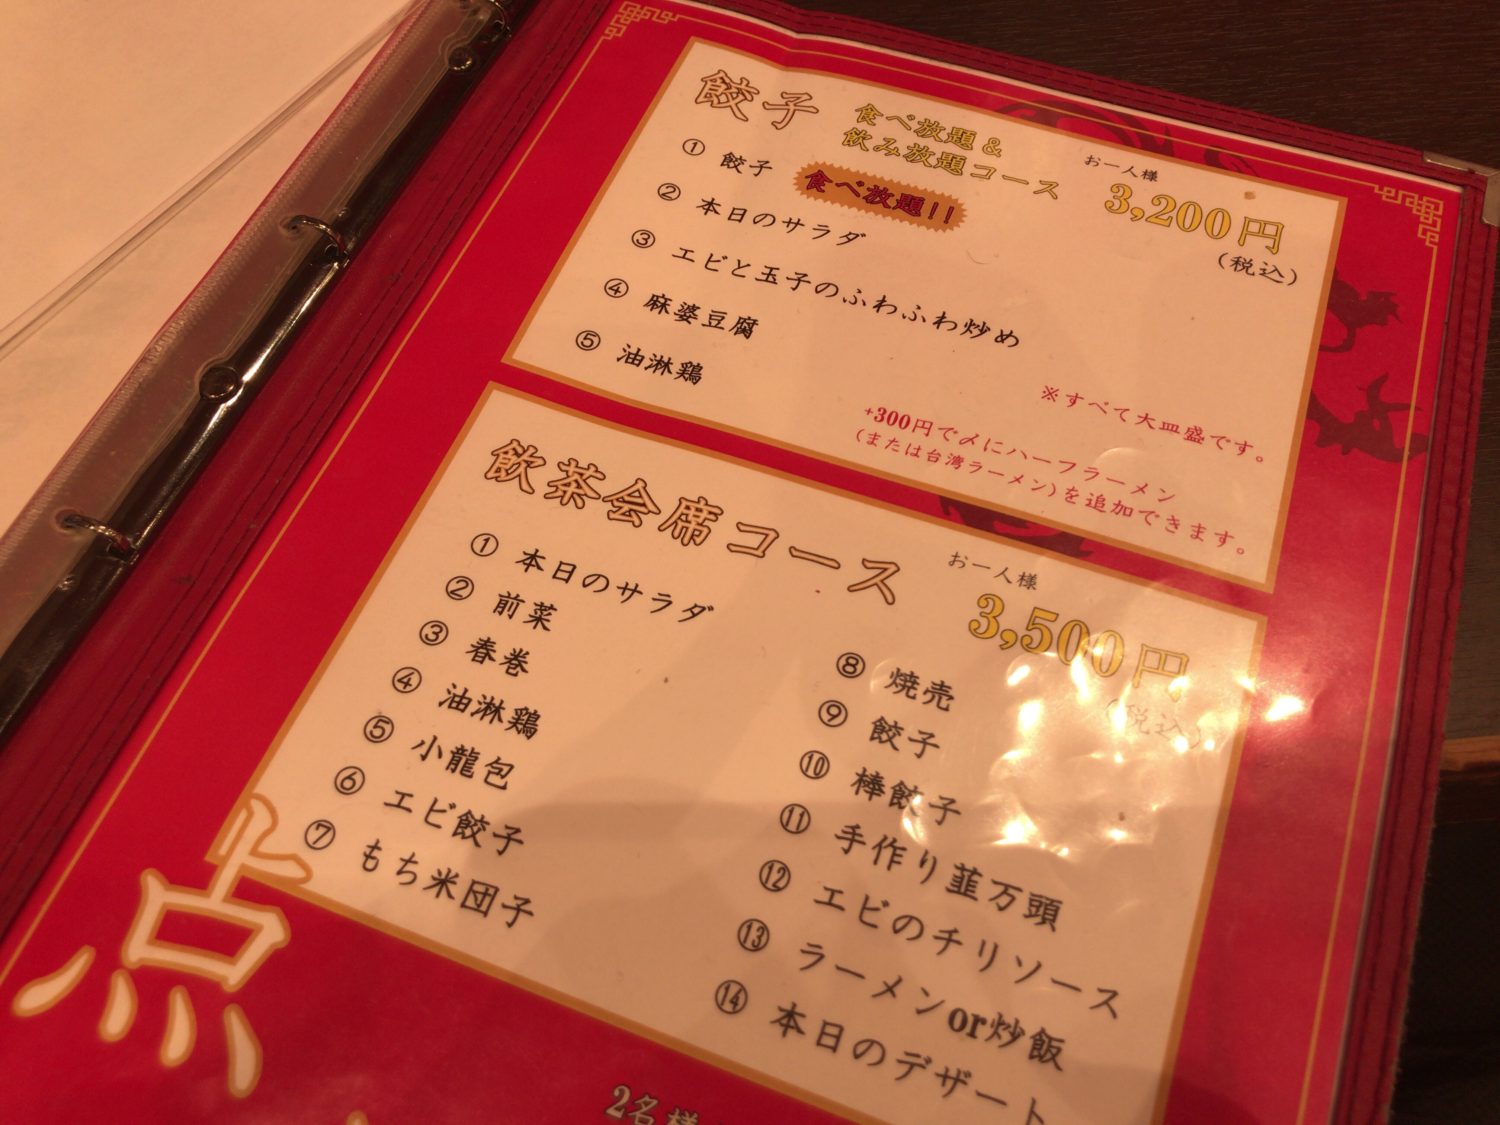 餃子
食べ放題&
飲み放題コース
お一人様
3,200円
(税込)
① 餃子 食べ放題!!
② 本日のサラダ
③ エビと玉子のふわふわ炒め
④ 麻婆豆腐
⑤ 油淋鶏
※すべて大皿盛です。
+300円で〆にハーフラーメン
(または台湾ラーメン)を追加できます。
飲茶会席コース
お一人様
3,500円
(税込)
① 本日のサラダ
② 前菜
③ 春巻
④ 油淋鶏
⑤ 小龍包
⑥ エビ餃子
⑦ もち米団子
⑧ 焼売
⑨ 餃子
⑩ 棒餃子
⑪ 手作り韮万頭
⑫ エビのチリソース
⑬ ラーメンor炒飯
⑭ 本日のデザート
点
2名様